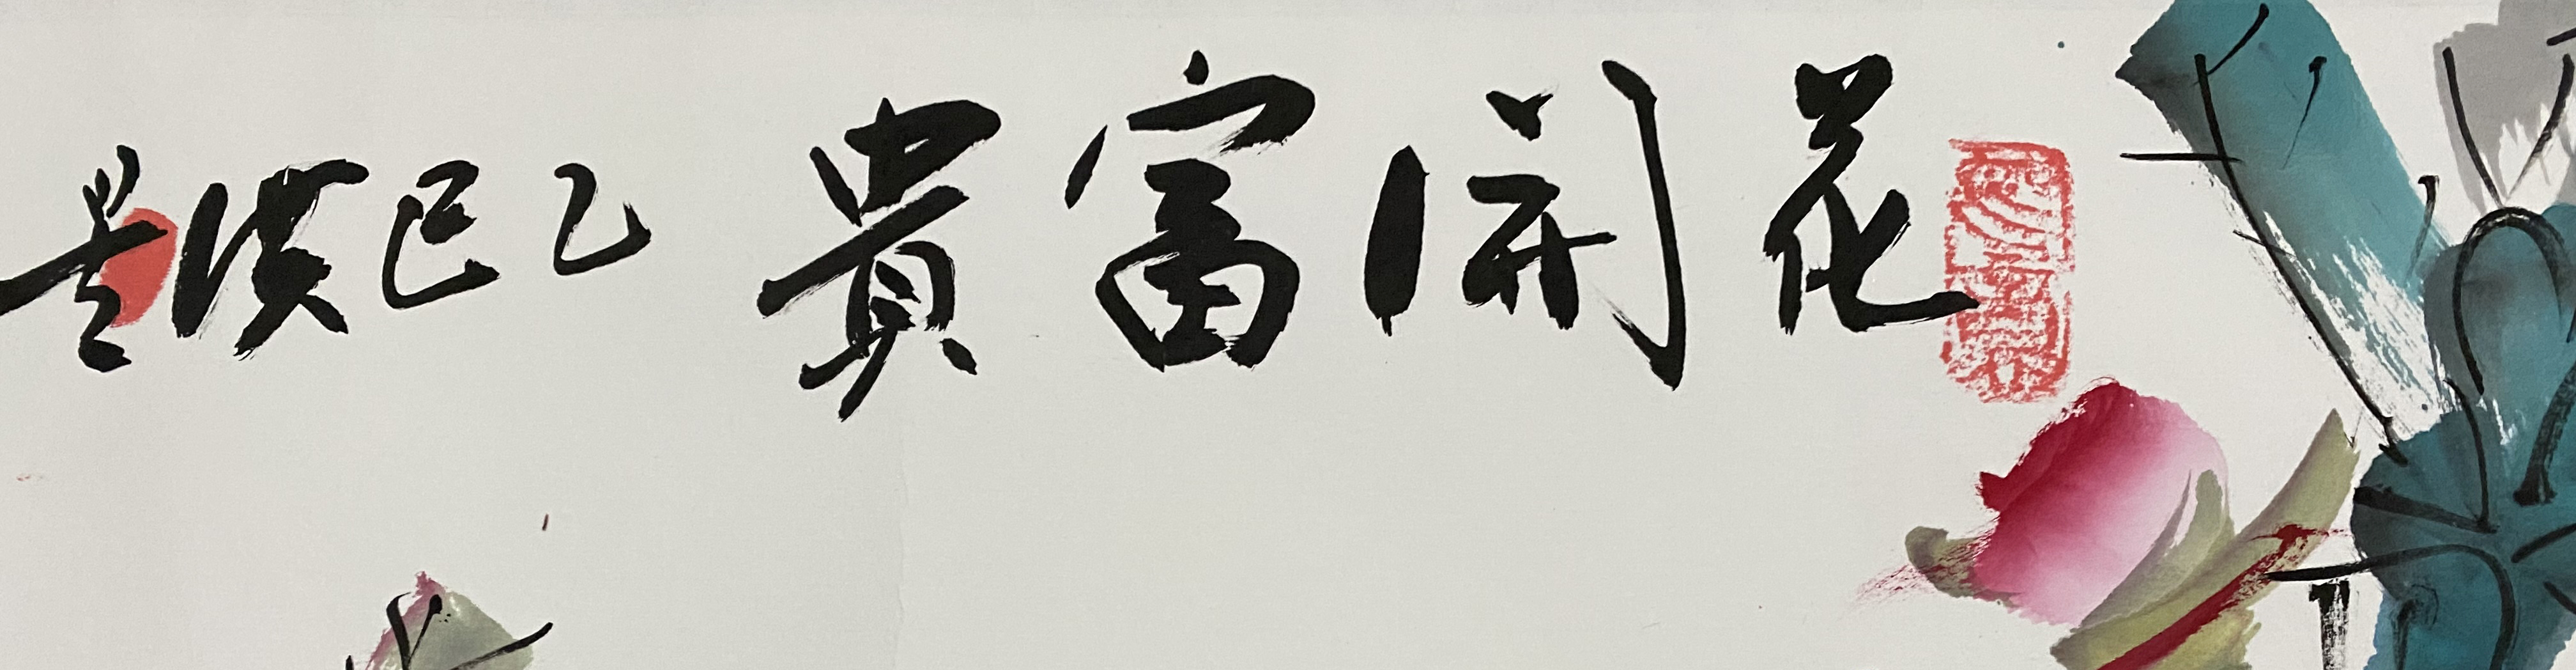 花開富貴 乙巳